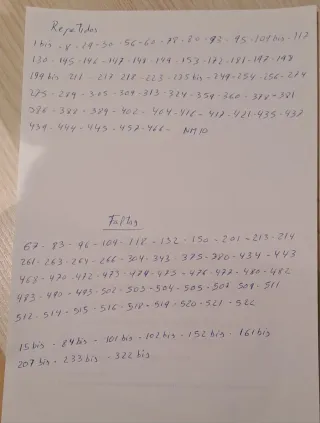 Repetidos
1 bis - 8 - 19 - 30 - 56 - 60 - 79 - 80 - 93 - 95 - 101 bis - 117
130 - 145 - 146 - 147 - 148 - 149 - 153 - 172 - 181 - 197 - 198
199 bis 211 - 217 - 218 - 223 - 225 bis - 249 - 254 - 256 - 274
275 - 289 - 305 - 309 - 313 - 324 - 359 - 360 - 378 - 381
386 - 388 - 389 - 402 - 404 - 416 - 417 - 421 - 435 - 437
439 - 444 - 445 - 457 - 466 - NM10
Faltas
67 - 83 - 96 - 104 - 118 - 132 - 150 - 201 - 213 - 214
261 - 263 - 264 - 266 - 304 - 343 - 375 - 380 - 434 - 443
463 - 470 - 472 - 473 - 474 - 475 - 476 - 477 - 480 - 482
483 - 490 - 493 - 502 - 503 - 504 - 505 - 507 - 509 - 511
512 - 514 - 515 - 516 - 518 - 519 - 520 - 521 - 522
15 bis - 84 bis - 101 bis - 102 bis - 152 bis - 161 bis
207 bis - 233 bis - 322 bis